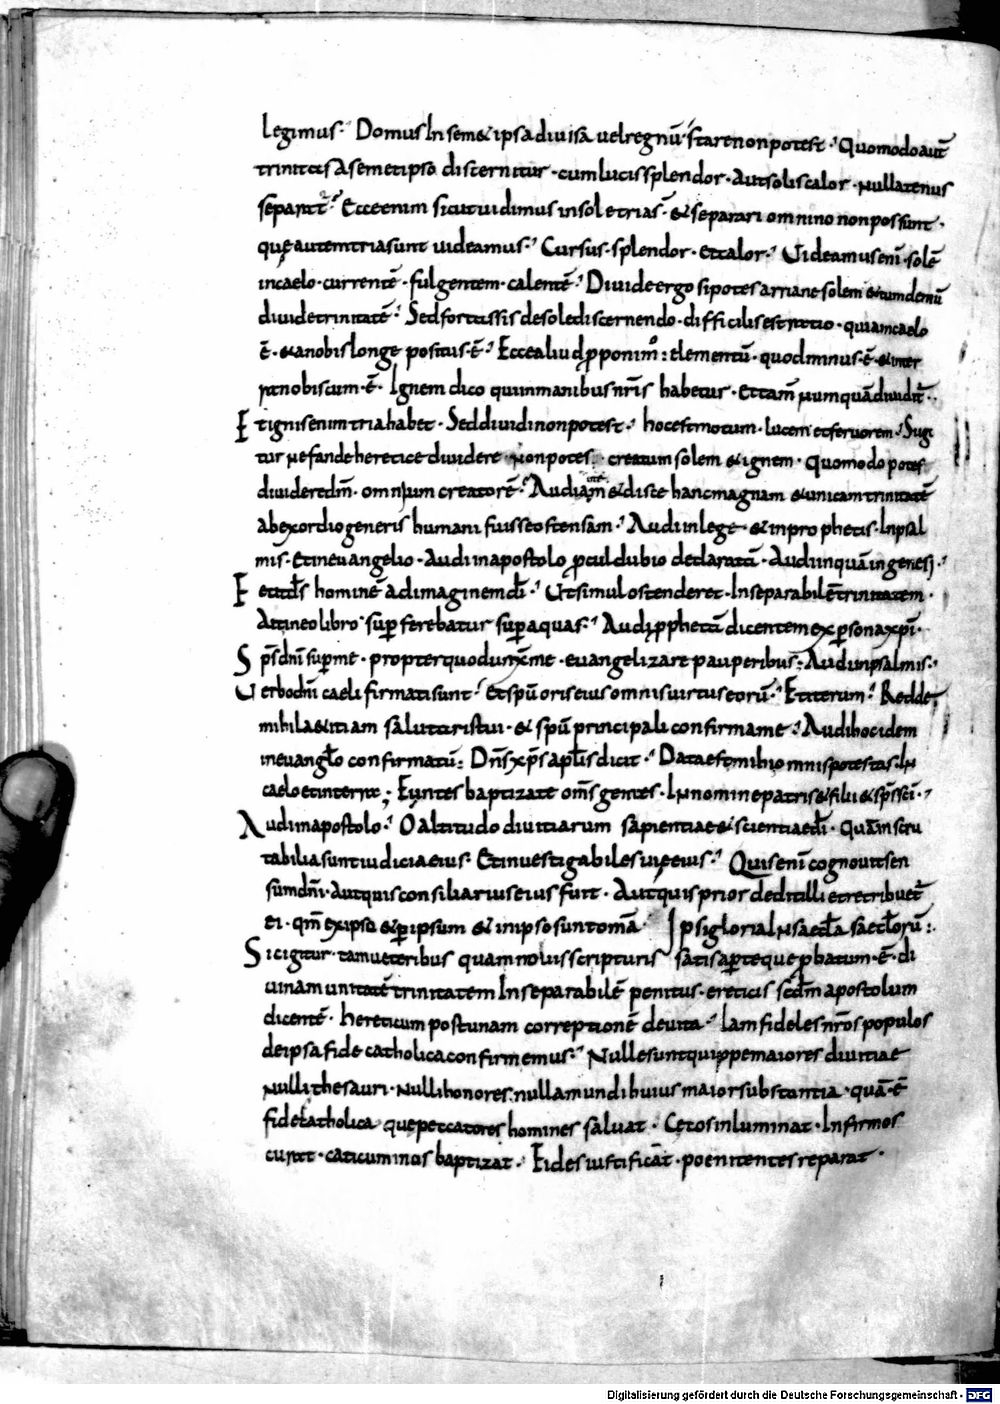 legimus. Domus In sem& ipsa diuisa uel regnū stare non potest. Quomodo aut̄
trinitas A semetipsa discernitur. cum lucis splendor. Aut solis calor. Nullatenus
separat̄. Ecce enim sicut uidimus in sole trias. & separari omnino non possunt.
quę autem tria sunt uideamus. Cursus. splendor. et calor. Uideamus enī. solē
in caelo. currentē. fulgentem. calentē. Diuide ergo si potes arriane solem & tum demū
diuide trinitatē. Sed fortassis de sole discernendo. difficilis est ratio. quia in caelo
ē. & a nobis longe positus. ē. Ecce aliud p̱ponim̊: elementū. quod minus. ē. & inter
ra nobiscum. ē. Ignem dico qui in manibus nr̄is habetur. et tam̄ numquā diuidit̄.
Et ignis enim tria habet. Sed diuidi non potest. hoc est motum. lucem et feruorem. Si igi
tur nefande heretice diuidere non potes. creatum solem & ignem. quomodo potes
diuidere dm̄. omnium creatorē. Audi am̄ & disce hanc magnam & unicam trinitatē
ab exordio generis humani fuisse ostensam. Audi in lege. & in prophetis. In psal
mis. Et in euangelio. Audi in apostolo p̱cul dubio declaratā. Audi inquā in genesi.
Fecit ds̄ hominē ad imaginem dī. Ut simul ostenderet. Inseparabilē trinitatem.
At in eo libro sup̱ ferebatur sup̱ aquas. Audi p̱phetā dicentem ex p̱sona xpī.
Sp̄s dnī sup̱ me. propter quod unx̄ me. euangelizare pauperibus: Audi in psalmis.
Uerbo dnī caeli firmati sunt. Et spū oris eius omnis uirtus eorū. Et iterum. Redde
mihi laetitiam salutaris tui. & spū principali confirma me. Audi hoc idem
in euanglo confirmatū: Dns̄ xp̄s apl̄is dicit. Data est mihi omnis potestas. In
caelo et in terra; Euntes baptizate oms̄ gentes. In nomine patris & filii & sp̄s scī.
Audi in apostolo. O altitudo diuitiarum sapientiae & scientiae dī. Quā inscru
tabilia sunt iudicia eius. Et inuestigabiles uię eius. Quis enī cognouit sen
sum dnī. Aut quis consiliarius eius fuit. Aut quis prior dedit illi et retribuet̄
ei. qm̄ ex ipso & p̱ ipsum & in ipso sunt omā Ipsi gloria In saecla saeclorū:.
Sic igitur. tam ueteribus quam nouis scripturis satis ap̱teque p̱batum. ē. di
uinam unitatē trinitatem Inseparabilē penitus. ereticis scdm̄ apostolum
dicentē. hereticum post unam correptionē deuita. Iam fideles nr̄os populos
de ipsa fide catholica confirmemus. Nulle sunt quippe maiores diuitiae
Nulli thesauri. Nulli honores. nulla mundi huius maior substantia. quā. ē
fide catholica que peccatores homines saluat. Cecos inluminat. Infirmos
curat. caticuminos baptizat. Fides iustificāt. poenitentes reparat.
Digitalisierung gefördert durch die Deutsche Forschungsgemeinschaft - DFG